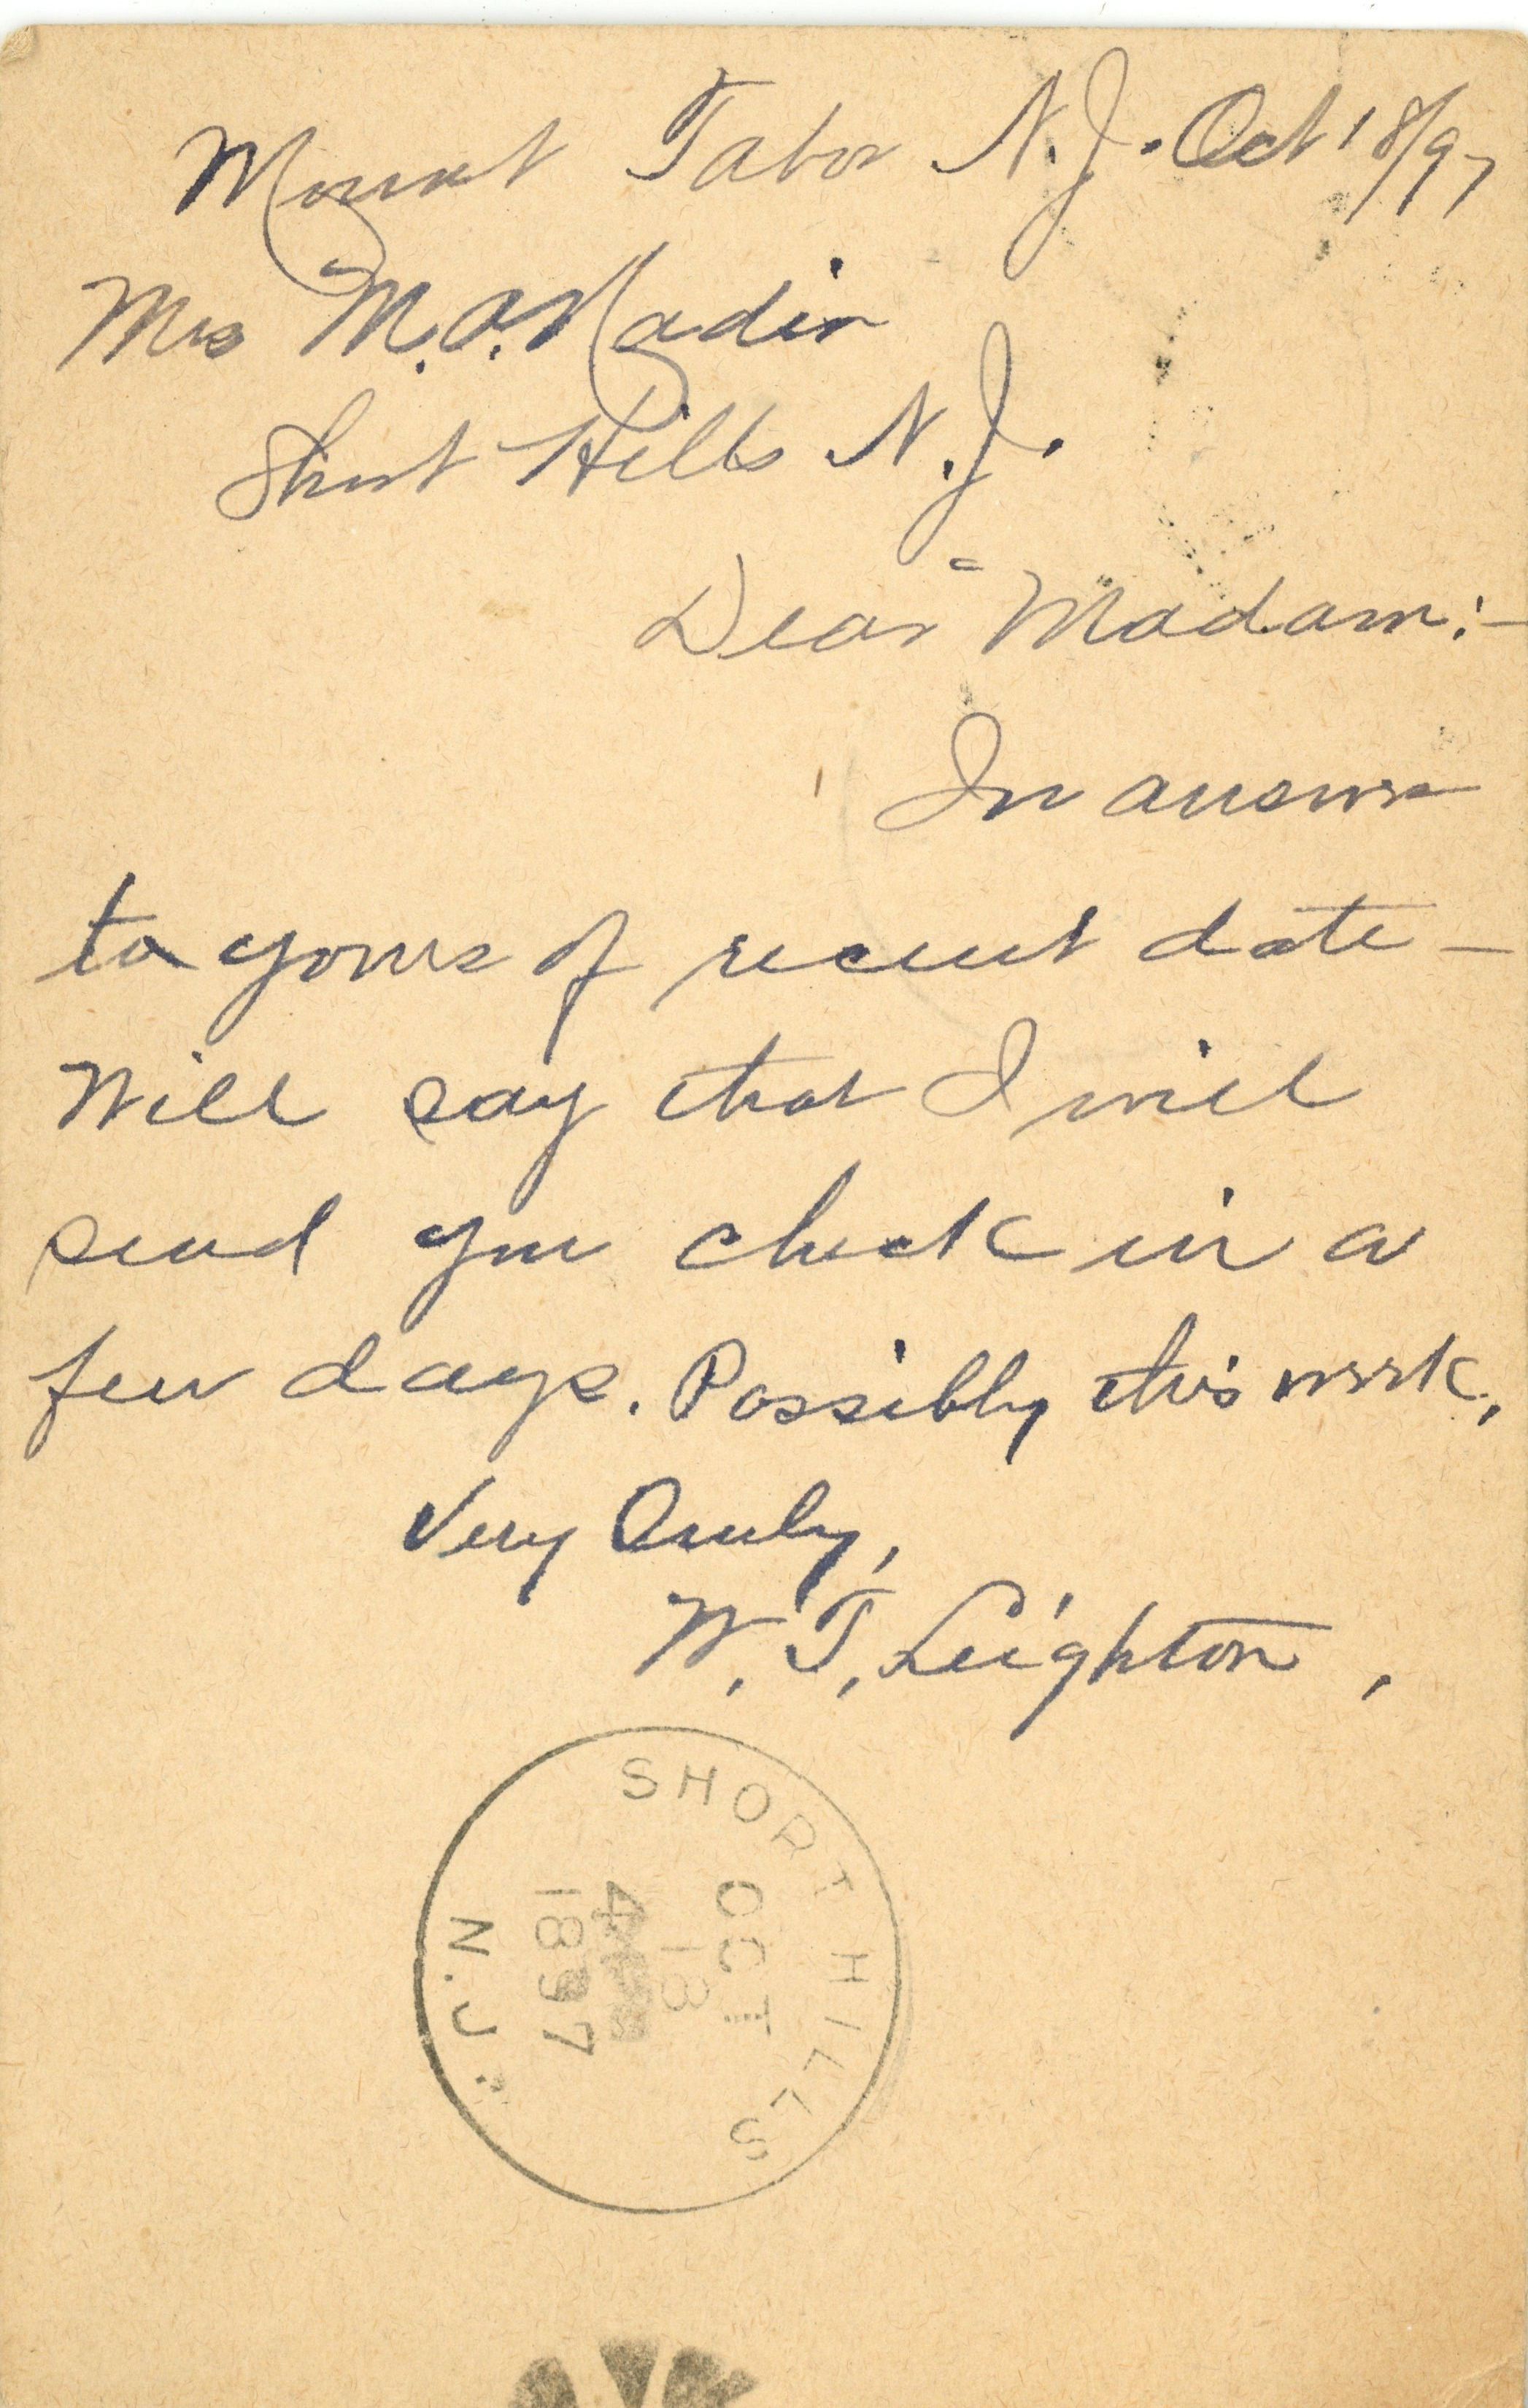 Mount Tabor N.J. Oct 18/97
Mrs M.O. Nadin
Short Hills N.J.
Dear Madam:-
In answer
to yours of recent date -
Will say that I will
send you check in a
few days. Possibly this week.
Very Truly,
W. T. Leighton.
SHORT HILLS
OCT
18
4
1897
N.J.